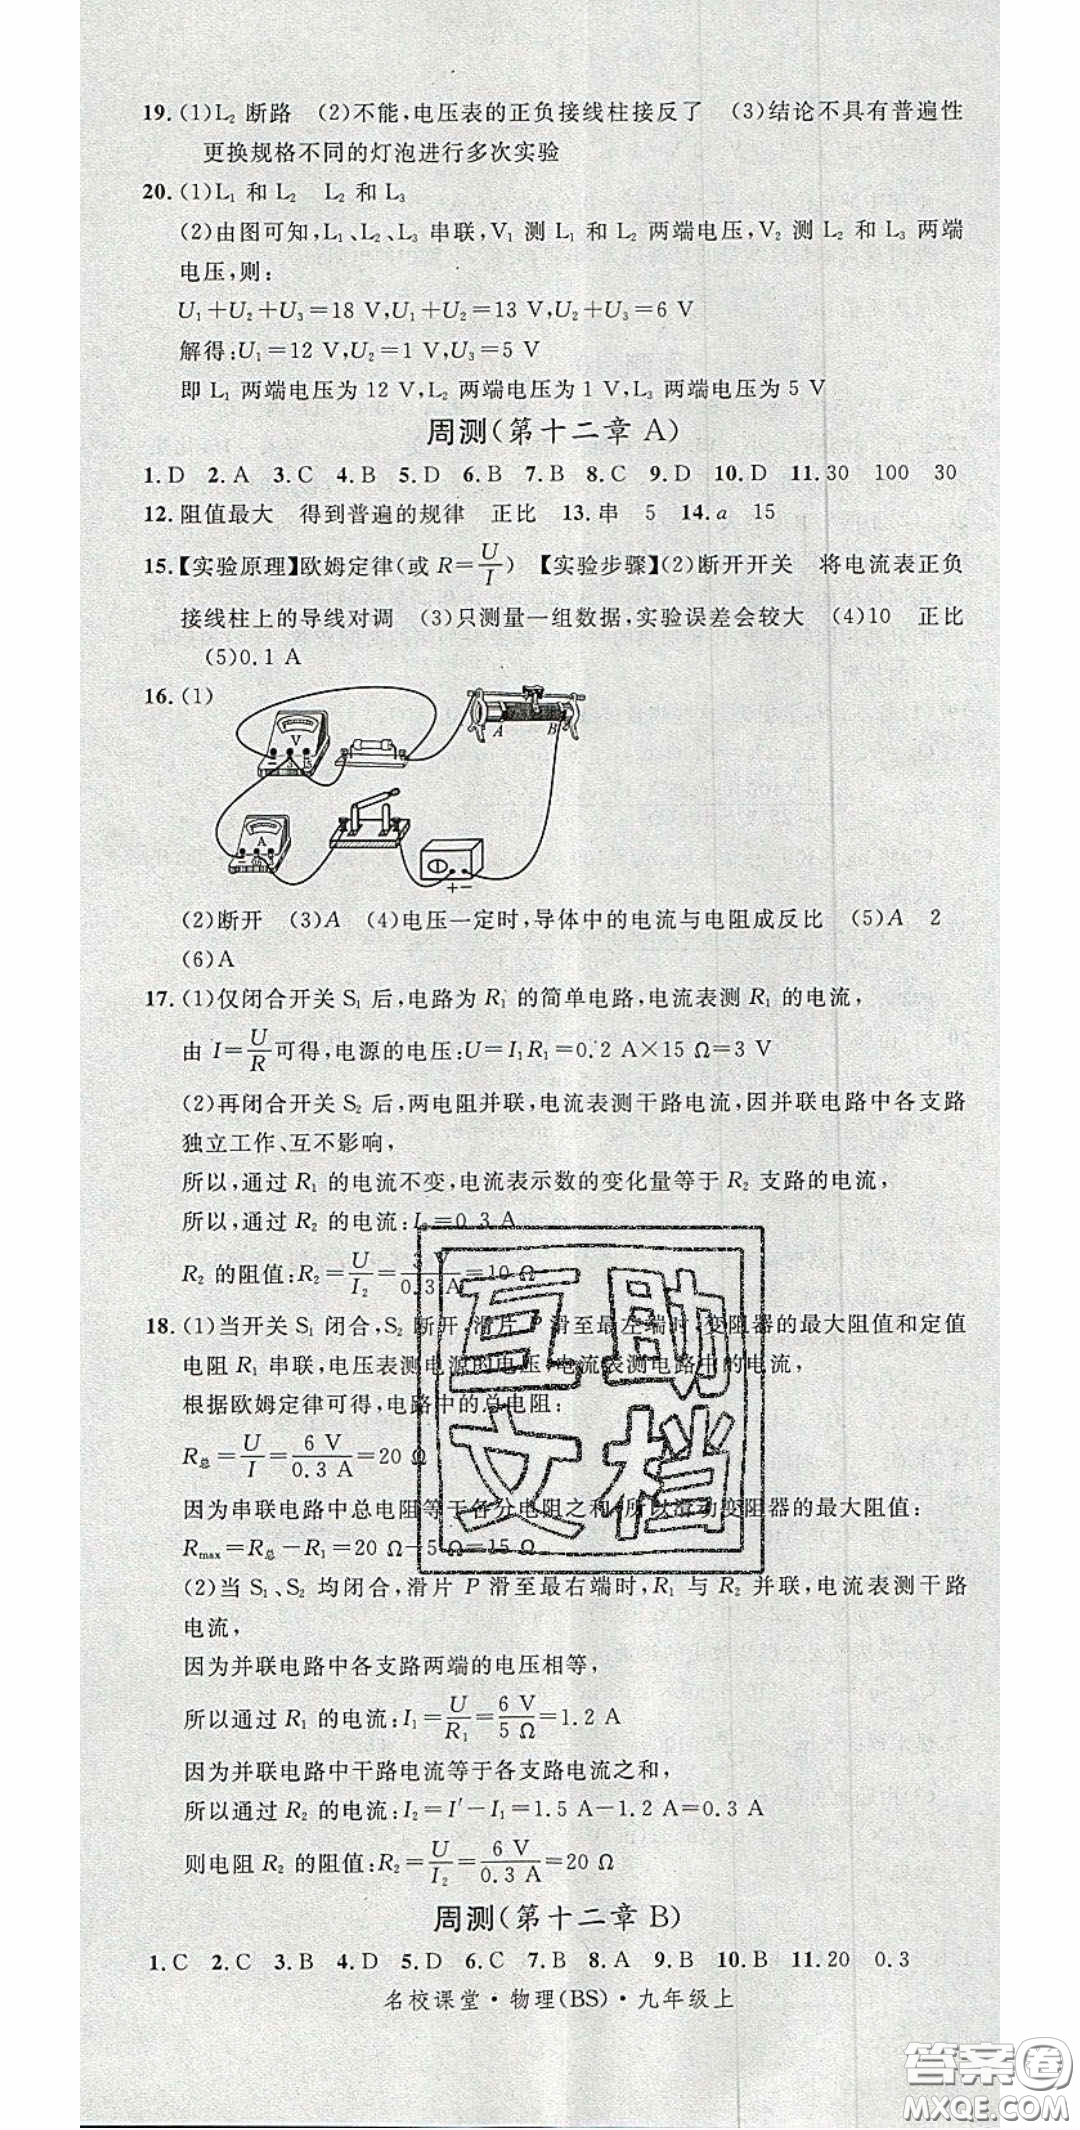 19. (1)L₂ 断路 (2)不能,电压表的正负接线柱接反了 (3)结论不具有普遍性
更换规格不同的灯泡进行多次实验
20. (1)L₁ 和 L₂ L₂ 和 L₃
(2)由图可知,L₁、L₂、L₃ 串联,V₁ 测 L₁ 和 L₂ 两端电压,V₂ 测 L₂ 和 L₃ 两端
电压,则:
U₁+U₂+U₃=18 V,U₁+U₂=13 V,U₂+U₃=6 V
解得:U₁=12 V,U₂=1 V,U₃=5 V
即 L₁ 两端电压为 12 V,L₂ 两端电压为 1 V,L₃ 两端电压为 5 V
周测(第十二章 A)
1. D 2. A 3. C 4. B 5. D 6. B 7. B 8. C 9. D 10. D 11. 30 100 30
12. 阻值最大 得到普遍的规律 正比 13. 串 5 14. a 15
15.【实验原理】欧姆定律(或 R=U/I) 【实验步骤】(2)断开开关 将电流表正负
接线柱上的导线对调 (3)只测量一组数据,实验误差会较大 (4)10 正比
(5)0.1 A
16. (1)
V
A B
A
(2)断开 (3)A (4)电压一定时,导体中的电流与电阻成反比 (5)A 2
(6)A
17. (1)仅闭合开关 S₁ 后,电路为 R₁ 的简单电路,电流表测 R₁ 的电流,
由 I=U/R可得,电源的电压:U=I₁R₁=0.2 A×15 Ω=3 V
(2)再闭合开关 S₂ 后,两电阻并联,电流表测干路电流,因并联电路中各支路
独立工作、互不影响,
所以,通过 R₁ 的电流不变,电流表示数的变化量等于 R₂ 支路的电流,
所以,通过 R₂ 的电流:I₂=0.3 A
R₂ 的阻值:R₂=U/I₂=3 V/0.3 A=10 Ω
18. (1)当开关 S₁ 闭合,S₂ 断开,滑片 P 滑至最左端时,变阻器的最大阻值和定值
电阻 R₁ 串联,电压表测电源的电压,电流表测电路中的电流,
根据欧姆定律可得,电路中的总电阻:
R总=U/I=6 V/0.3 A=20 Ω
因为串联电路中总电阻等于各分电阻之和,所以滑动变阻器的最大阻值:
Rmax=R总-R₁=20 Ω-5 Ω=15 Ω
(2)当 S₁、S₂ 均闭合,滑片 P 滑至最右端时,R₁ 与 R₂ 并联,电流表测干路
电流,
因为并联电路中各支路两端的电压相等,
所以通过 R₁ 的电流:I₁=U/R₁=6 V/5 Ω=1.2 A
因为并联电路中干路电流等于各支路电流之和,
所以通过 R₂ 的电流:I₂=I′-I₁=1.5 A-1.2 A=0.3 A
则电阻 R₂ 的阻值:R₂=U/I₂=6 V/0.3 A=20 Ω
互助
文档
周测(第十二章 B)
1. C 2. C 3. B 4. D 5. D 6. C 7. B 8. A 9. B 10. B 11. 20 0.3
名校课堂·物理(BS)·九年级上
答案圈
MXQE.COM